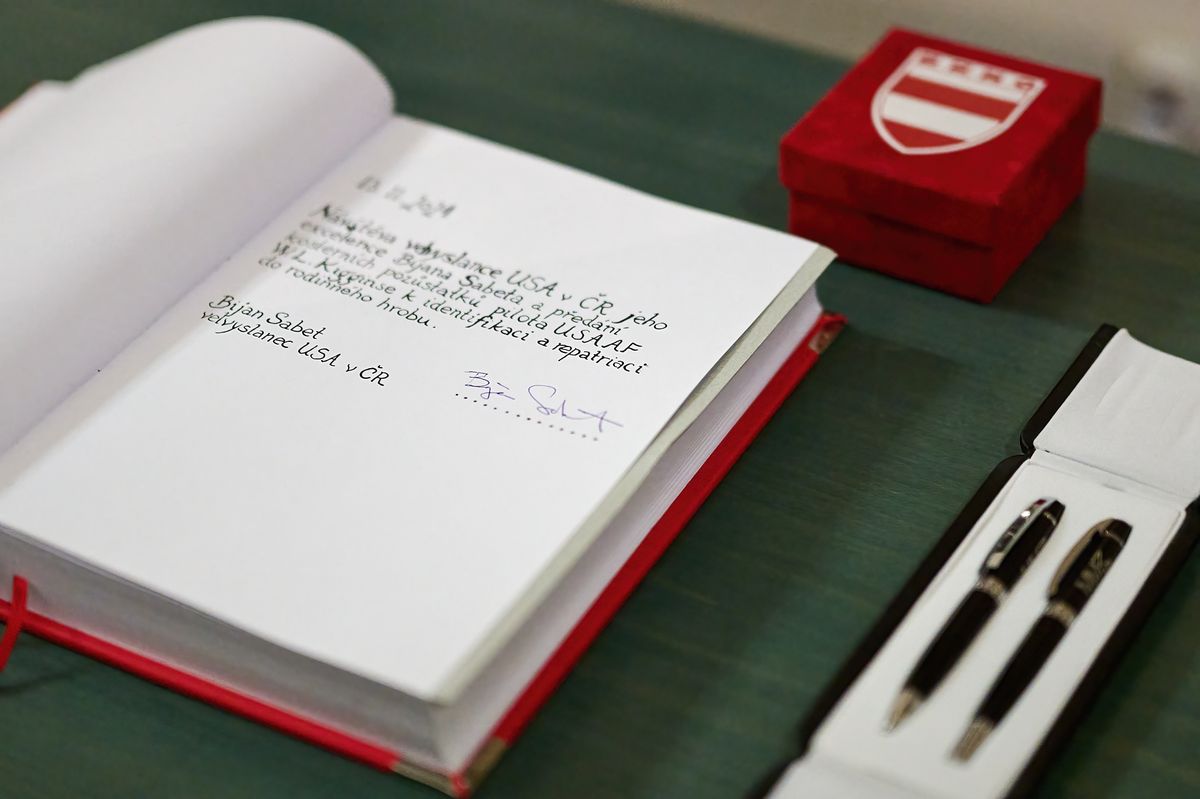 13. 11. 2024
Návštěva velvyslance USA v ČR jeho
excelence Bijana Sabeta a předání
kosterních pozůstatků pilota USAAF
W. L. Kigginse k identifikaci a repatriaci
do rodinného hrobu.
Bijan Sabet
velvyslanec USA v ČR